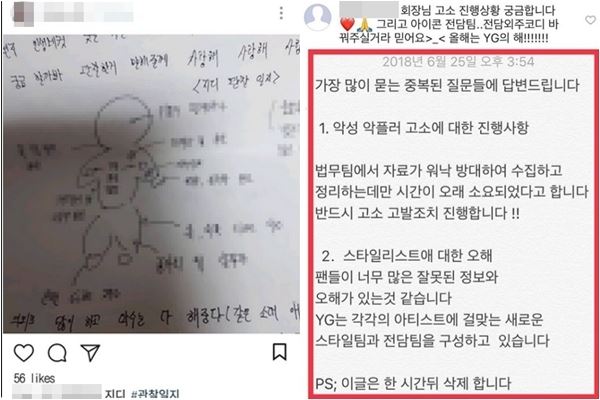 사랑해 사랑해
<지디 관찰 일지>
56 likes
지디 #관찰일지
회장님 고소 진행상황 궁금합니다
❤️🙏 그리고 아이콘 전담팀..전담외주코디 바
꿔주실거라 믿어요>_< 올해는 YG의 해!!!!!!!
2018년 6월 25일 오후 3:54
가장 많이 묻는 중복된 질문들에 답변드립니다
1. 악성 악플러 고소에 대한 진행사항
법무팀에서 자료가 워낙 방대하여 수집하고
정리하는데만 시간이 오래 소요되었다고 합니다
반드시 고소 고발조치 진행합니다 !!
2. 스타일리스트애 대한 오해
팬들이 너무 많은 잘못된 정보와
오해가 있는것 같습니다
YG는 각각의 아티스트에 걸맞는 새로운
스타일팀과 전담팀을 구성하고 있습니다
PS; 이글은 한 시간뒤 삭제 합니다